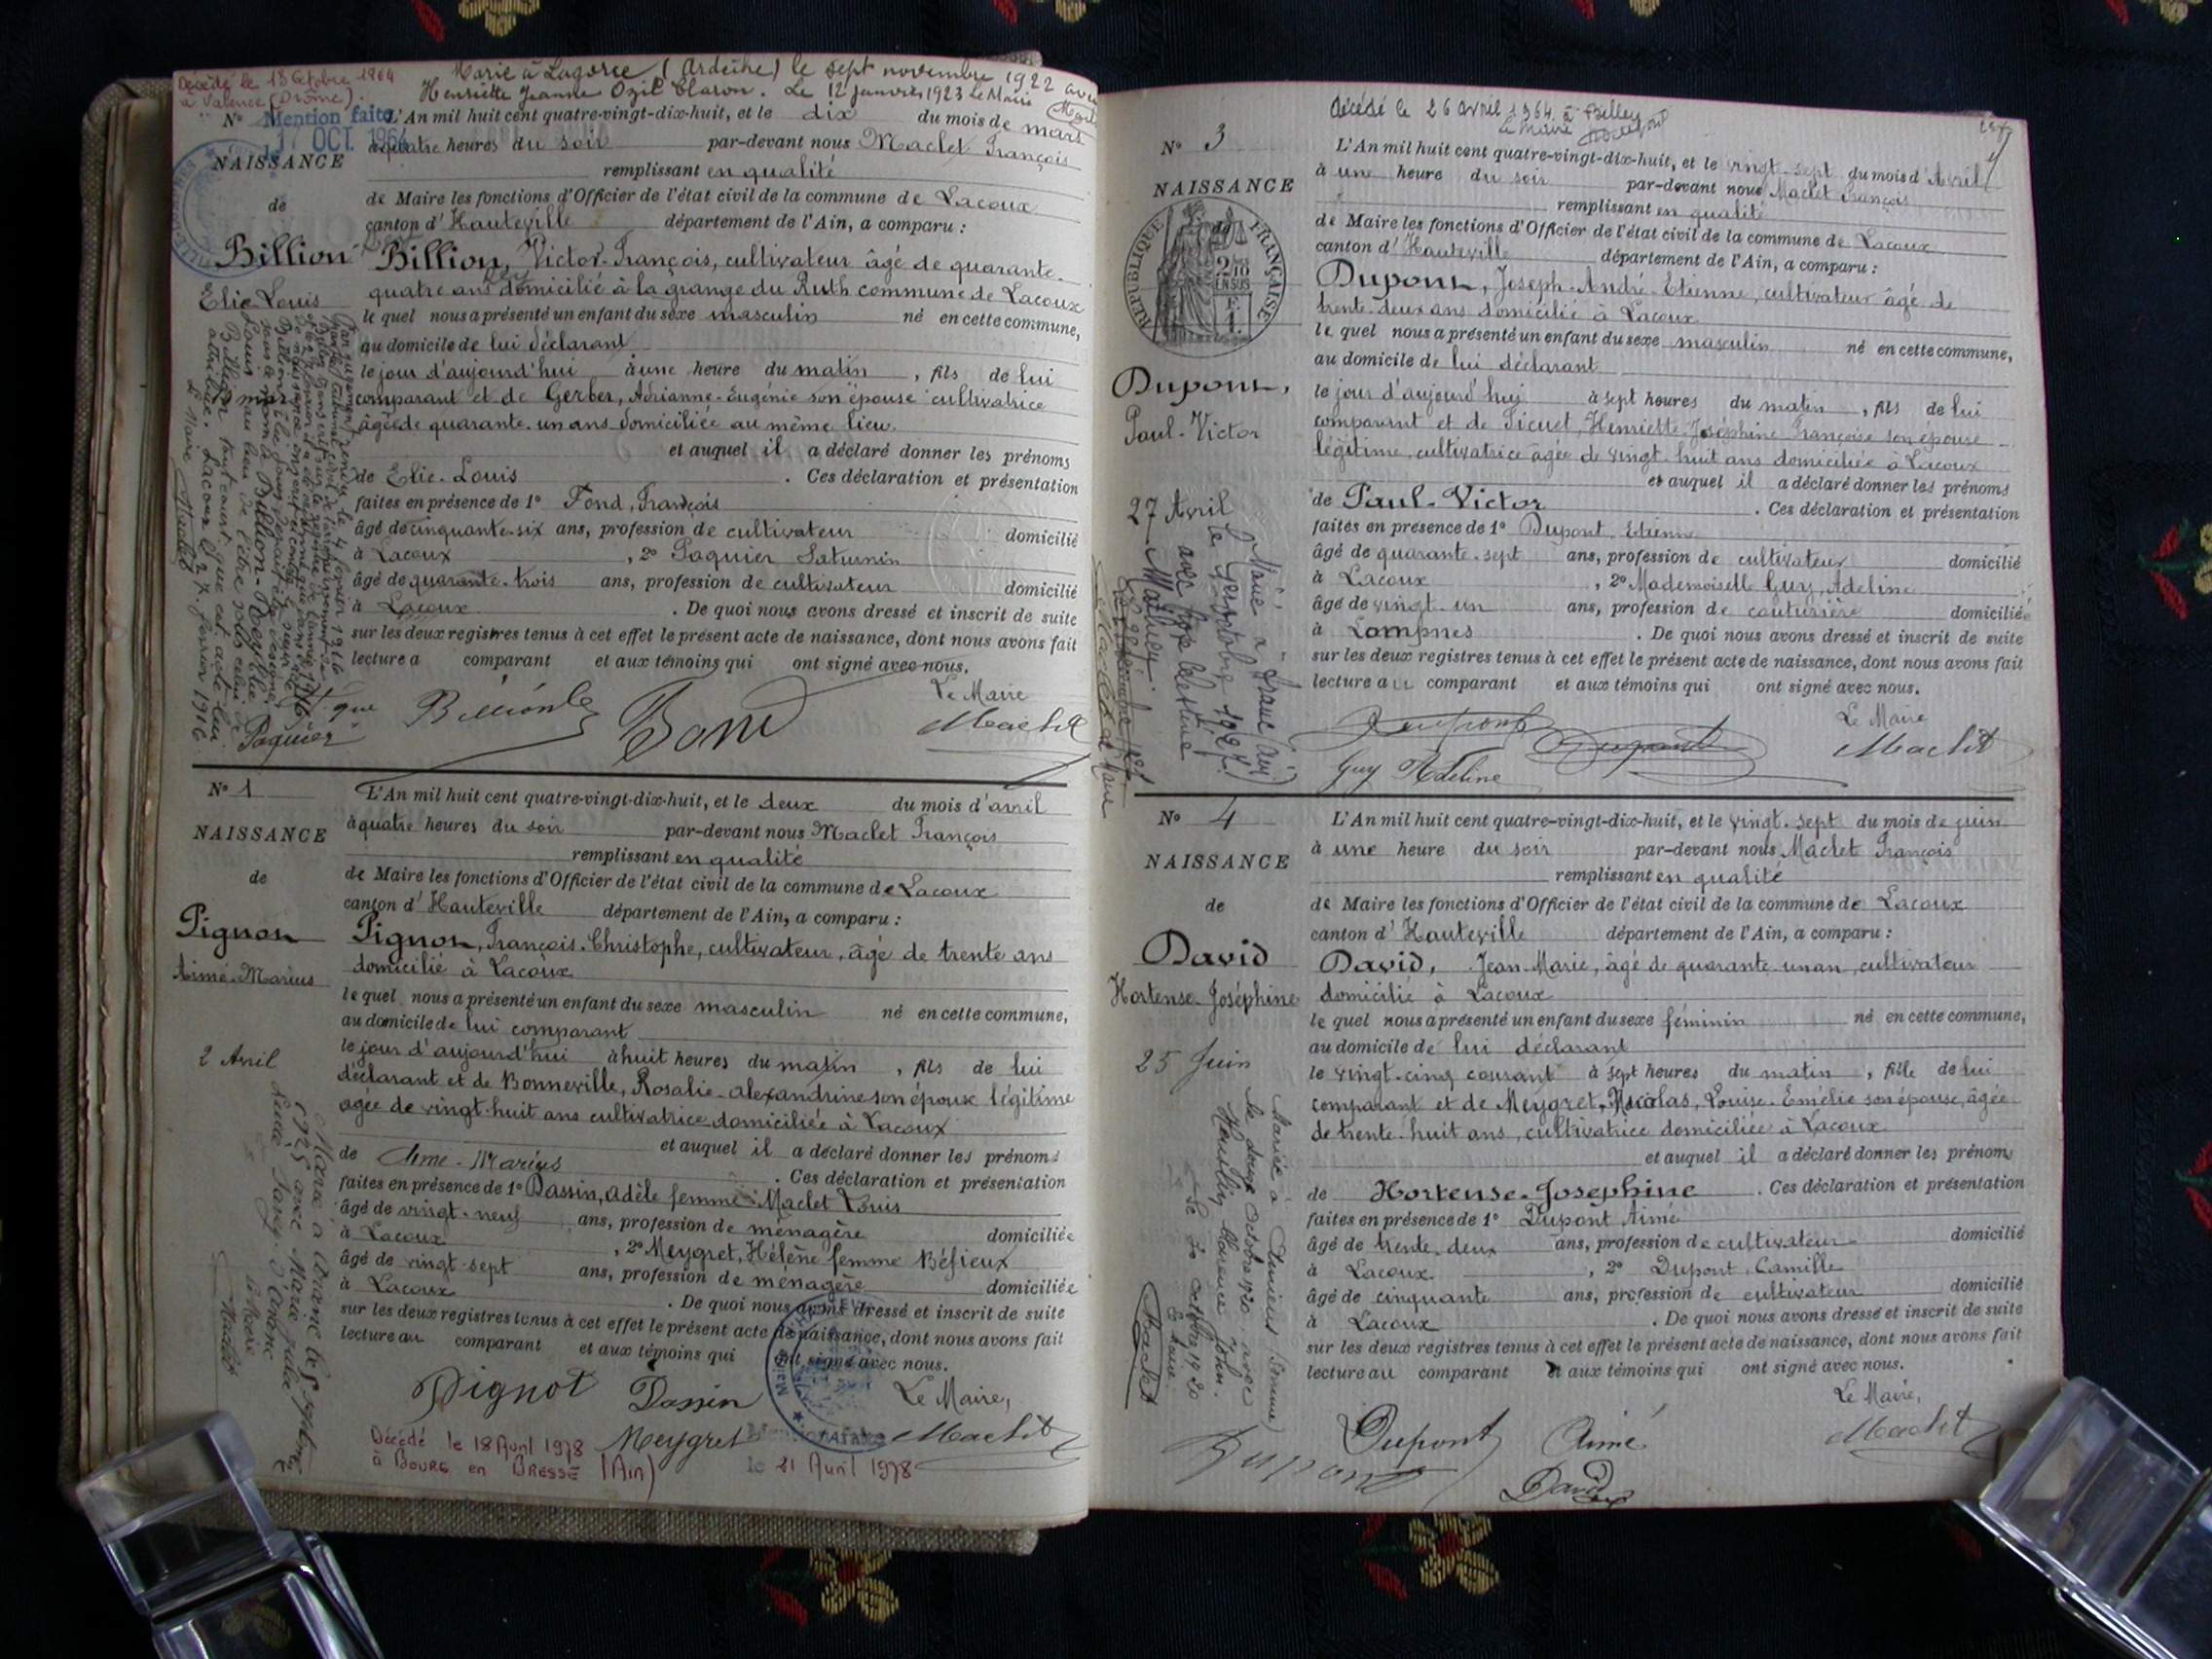 Décédé le 13 Octobre 1964
à Valence (Drôme).
Marié à Lagorce (Ardèche) le sept novembre 1922 avec
Henriette Jeanne Ozil Claron. Le 12 janvier 1923 Le Maire
Mention faite
17 OCT. 1964
NAISSANCE
de
Billion
Elie Louis
L'An mil huit cent quatre-vingt-dix-huit, et le dix du mois de mars
à quatre heures du soir par-devant nous Maclet François
remplissant en qualité
de Maire les fonctions d'Officier de l'état civil de la commune de Lacoux
canton d'Hauteville département de l'Ain, a comparu :
Billion, Victor-François, cultivateur âgé de quarante-
quatre ans domicilié à la grange du Ruth commune de Lacoux
le quel nous a présenté un enfant du sexe masculin né en cette commune,
au domicile de lui déclarant
le jour d'aujourd'hui à une heure du matin, fils de lui
comparant et de Gerber, Adrianne-Eugénie son épouse cultivatrice
âgée de quarante-un ans domiciliée au même lieu.
et auquel il a déclaré donner les prénoms
de Elie-Louis. Ces déclaration et présentation
faites en présence de 1° Fond, François
âgé de cinquante-six ans, profession de cultivateur domicilié
à Lacoux, 2° Paquier Saturnin
âgé de quarante-trois ans, profession de cultivateur domicilié
à Lacoux. De quoi nous avons dressé et inscrit de suite
sur les deux registres tenus à cet effet le présent acte de naissance, dont nous avons fait
lecture a comparant et aux témoins qui ont signé avec nous.
Le Maire
Paquier
Maclet
N° 1
NAISSANCE
de
Pignon
Aimé-Marius
2 Avril
L'An mil huit cent quatre-vingt-dix-huit, et le deux du mois d'avril
à quatre heures du soir par-devant nous Maclet François
remplissant en qualité
de Maire les fonctions d'Officier de l'état civil de la commune de Lacoux
canton d'Hauteville département de l'Ain, a comparu :
Pignon, François-Christophe, cultivateur, âgé de trente ans
domicilié à Lacoux
le quel nous a présenté un enfant du sexe masculin né en cette commune,
au domicile de lui comparant
le jour d'aujourd'hui à huit heures du matin, fils de lui
déclarant et de Bonneville, Rosalie-alexandrine son épouse légitime
agée de vingt-huit ans cultivatrice domiciliée à Lacoux
et auquel il a déclaré donner les prénoms
de Aimé-Marius. Ces déclaration et présentation
faites en présence de 1° Dassin, Adèle femme Maclet Louis
âgé de vingt-neuf ans, profession de ménagère domiciliée
à Lacoux, 2° Meygret, Hélène femme Béfieux
âgé de vingt-sept ans, profession de ménagère domiciliée
à Lacoux. De quoi nous avons dressé et inscrit de suite
sur les deux registres tenus à cet effet le présent acte de naissance, dont nous avons fait
lecture au comparant et aux témoins qui ont signé avec nous.
Le Maire,
Dassin
Meygret
Maclet
Décédé le 18 Avril 1978
à BOURG en BRESSE (Ain)
le 21 Avril 1978
Décédé le 26 avril 1964 à Belley
le Maire
N° 3
NAISSANCE
RÉPUBLIQUE FRANÇAISE
Dupont,
Paul-Victor
27 Avril
L'An mil huit cent quatre-vingt-dix-huit, et le vingt-sept du mois d'Avril
à une heure du soir par-devant nous Maclet François
remplissant en qualité
de Maire les fonctions d'Officier de l'état civil de la commune de Lacoux
canton d'Hauteville département de l'Ain, a comparu :
Dupont, Joseph-André-Etienne, cultivateur âgé de
trente-deux ans domicilié à Lacoux
le quel nous a présenté un enfant du sexe masculin né en cette commune,
au domicile de lui déclarant
le jour d'aujourd'hui à sept heures du matin, fils de lui
comparant et de Picuet, Henriette-Joséphine Françoise son épouse
légitime, cultivatrice âgée de vingt-huit ans domiciliée à Lacoux
et auquel il a déclaré donner les prénoms
de Paul-Victor. Ces déclaration et présentation
faites en présence de 1° Dupont, Etienne
âgé de quarante-sept ans, profession de cultivateur domicilié
à Lacoux, 2° Mademoiselle Guy, Adeline
âgé de vingt-un ans, profession de couturière domiciliée
à Lompnes. De quoi nous avons dressé et inscrit de suite
sur les deux registres tenus à cet effet le présent acte de naissance, dont nous avons fait
lecture au comparant et aux témoins qui ont signé avec nous.
Le Maire
Dupont
Dupont
Maclet
Guy Adeline
N° 4
NAISSANCE
de
David
Hortense-Joséphine
25 Juin
L'An mil huit cent quatre-vingt-dix-huit, et le vingt-sept du mois de juin
à une heure du soir par-devant nous Maclet François
remplissant en qualité
de Maire les fonctions d'Officier de l'état civil de la commune de Lacoux
canton d'Hauteville département de l'Ain, a comparu :
David, Jean-Marie, âgé de quarante-un an, cultivateur
domicilié à Lacoux
le quel nous a présenté un enfant du sexe féminin né en cette commune,
au domicile de lui déclarant
le vingt-cinq courant à sept heures du matin, fille de lui
comparant et de Meygret, Nicolas, Louise-Emélie son épouse, âgée
de trente-huit ans, cultivatrice domiciliée à Lacoux
et auquel il a déclaré donner les prénoms
de Hortense-Josephine. Ces déclaration et présentation
faites en présence de 1° Dupont Aimé
âgé de trente-deux ans, profession de cultivateur domicilié
à Lacoux, 2° Dupont, Camille
âgé de cinquante ans, profession de cultivateur domicilié
à Lacoux. De quoi nous avons dressé et inscrit de suite
sur les deux registres tenus à cet effet le présent acte de naissance, dont nous avons fait
lecture au comparant et aux témoins qui ont signé avec nous.
Le Maire,
Dupont Aimé
Maclet
Dupont
David